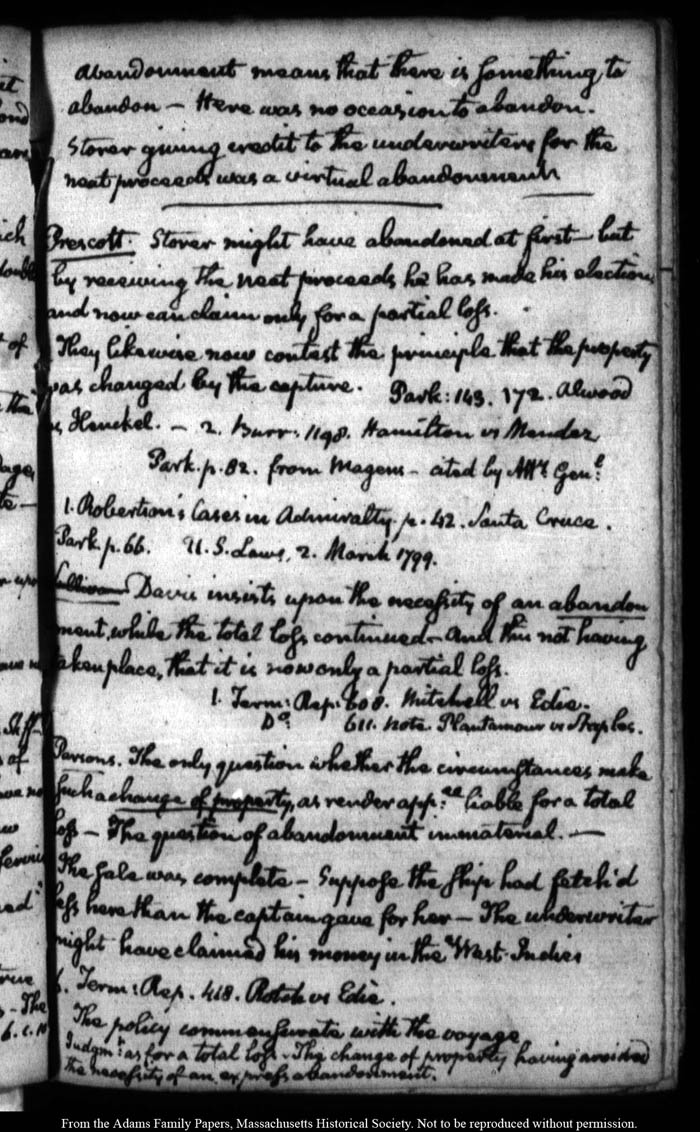 abandonment means that there is something to
abandon — Here was no occasion to abandon.
Storer giving credit to the underwriters for the
neat proceeds was a virtual abandonment
Prescott. Storer might have abandoned at first — but
by receiving the neat proceeds he has made his election,
and now can claim only for a partial loss.
They likewise now contest the principle that the property
was changed by the capture. Park: 143. 172. Alwood
vs Henckel. — 2. Burr: 1198. Hamilton vs Mendez
Park. p. 82. from Magens — cited by Att.y Gen.l
1. Robertson's Cases in Admiralty. p. 42. Santa Cruce.
Park p. 66. U.S. Laws, 2. March 1799.
Sullivan Davis insists upon the necessity of an abandon
ment, while the total loss continued — And this not having
taken place, that it is now only a partial loss.
1. Term: Rep: 608. Mitchell vs Edie.
Do. 611. note. Plantamour vs Staples.
Parsons. The only question whether the circumstances make
such a change of property, as render app:ee liable for a total
loss — The question of abandonment immaterial. —
The sale was complete — Suppose the ship had fetch'd
less here than the captain gave for her — The underwriter
might have claimed his money in the West-Indies
6. Term: Rep. 418. Rotch vs Edie.
The policy commensurate with the voyage
Judgm:t as for a total loss — The change of property having avoided
the necessity of an express abandonment.
From the Adams Family Papers, Massachusetts Historical Society. Not to be reproduced without permission.